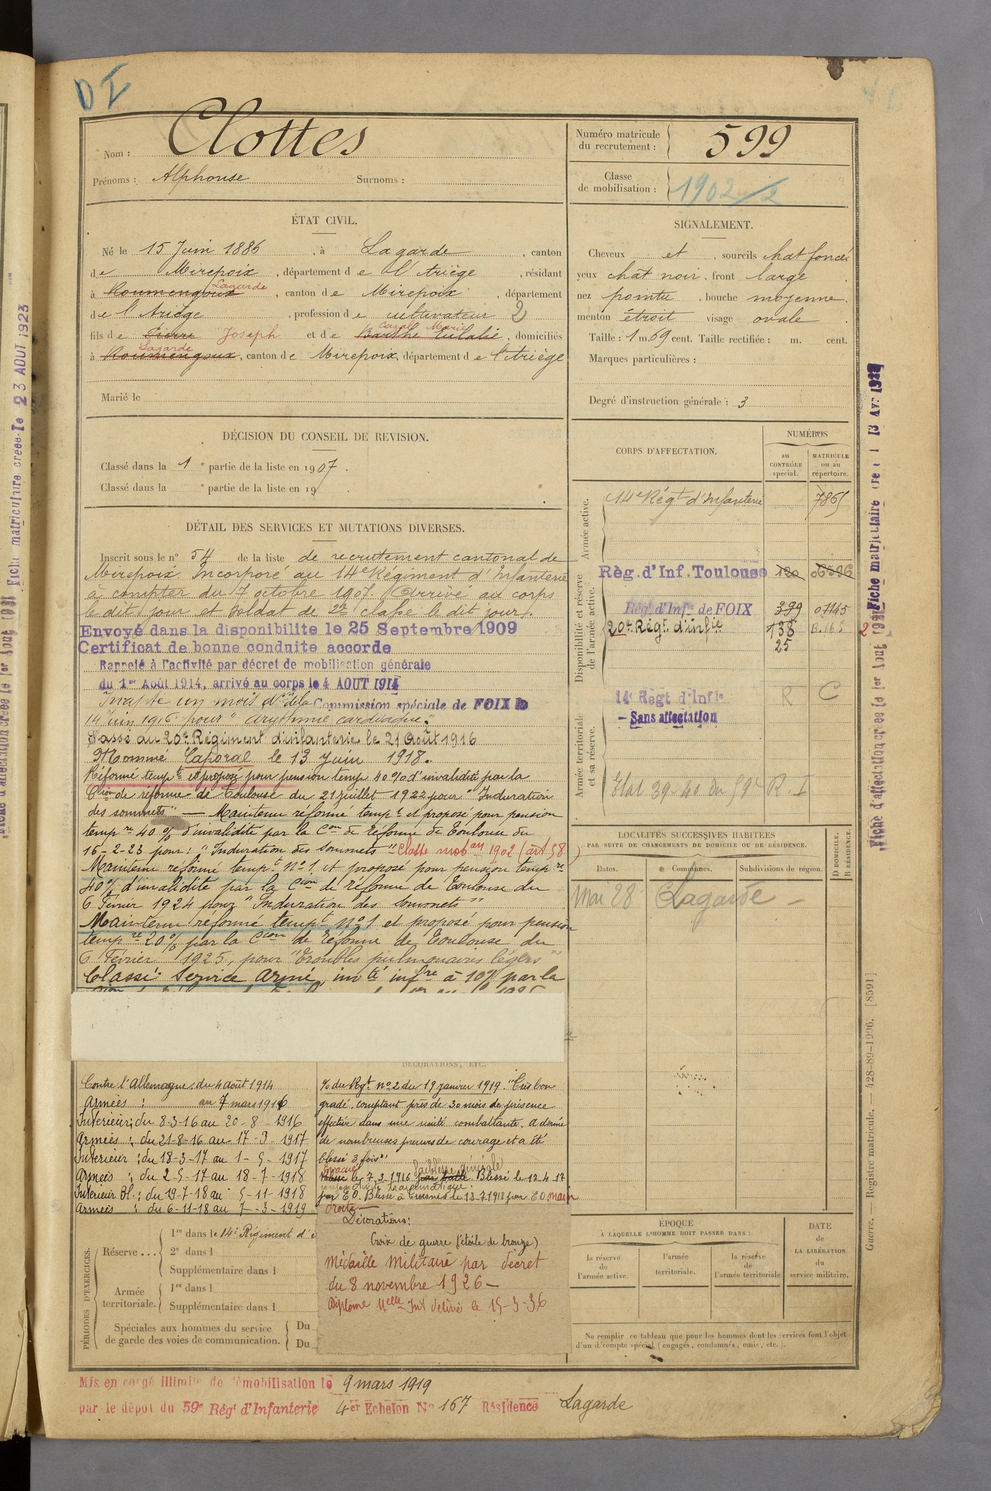 DI
Nom : Clottes
Prénoms : Alphonse Surnoms :
Numéro matricule
du recrutement : 599
Classe
de mobilisation : 1902
ÉTAT CIVIL.
Né le 15 Juin 1886, à Lagarde, canton
de Mirepoix, département de l'Ariège, résidant
Lagarde
à Roumengoux, canton de Mirepoix, département
de l'Ariège, profession de cultivateur 2
Cazal Marie
fils de Pierre Joseph et de Barthe Eulalie, domiciliés
Lagarde
à Roumengoux, canton de Mirepoix, département de l'Ariège
Marié le
SIGNALEMENT.
Cheveux et, sourcils chat foncé
yeux chat noir, front large
nez pointu, bouche moyenne
menton étroit visage ovale
Taille : 1 m. 69 cent. Taille rectifiée : m. cent.
Marques particulières :
Degré d'instruction générale : 3
DÉCISION DU CONSEIL DE REVISION.
Classé dans la 1e partie de la liste en 1907.
Classé dans la e partie de la liste en 19
DÉTAIL DES SERVICES ET MUTATIONS DIVERSES.
Inscrit sous le n° 54 de la liste de recrutement cantonal de
Mirepoix. Incorporé au 14e Régiment d'Infanterie
à compter du 7 octobre 1907. Arrivé au corps
le dit jour et soldat de 2e classe le dit jour.
Envoyé dans la disponibilité le 25 Septembre 1909
Certificat de bonne conduite accordé
Rappelé à l'activité par décret de mobilisation générale
du 1er Août 1914, arrivé au corps le 4 AOUT 1914
Inapte un mois don de la Commission spéciale de FOIX le
14 Juin 1916 pour "arythmie cardiaque".
Passé au 20e Régiment d'infanterie le 21 Août 1916
Nommé Caporal le 13 juin 1918.
Réformé tempre et proposé pour pension temp. 40% d'invalidité par la
Cion de réforme de Toulouse du 21 juillet 1922 pour "Induration
des sommets" — Maintenu réformé tempt et proposé pour pension
tempre 40% d'invalidité par la Con de Réforme de Toulouse du
16-2-23 pour : "Induration des sommets" Classe mobon 1902 (art 58)
Maintenu réformé tempt n°1 et proposé pour pension tempre
40% d'invalidité par la Cion de réforme de Toulouse du
6 Février 1924 pour "Induration des sommets"
Maintenu réformé tempt N°1 et proposé pour pension
tempre 20% par la Cion de Réforme de Toulouse du
6 Février 1925, pour "Troubles pulmonaires légers"
Classé Service Armé, invté infre à 10% par la
CORPS D'AFFECTATION.
NUMÉROS
AU CONTRÔLE spécial.
MATRICULE ou au répertoire.
Armée active.
14e Régt d'Infanterie 7865
Disponibilité et réserve
de l'armée active.
Rég. d'Inf. Toulouse
Rég. d'Inf. de FOIX 399 0745
20e Régt d'infie 138
25
Armée territoriale
et sa réserve.
14e Régt d'Infie R C
- Sans affectation
Etat 39-40 du 59e R. I
LOCALITÉS SUCCESSIVES HABITÉES
PAR SUITE DE CHANGEMENTS DE DOMICILE OU DE RÉSIDENCE.
Dates. Communes. Subdivisions de région. D DOMICILE. R RÉSIDENCE.
Mai 28 Lagarde -
DÉCORATIONS, ETC.
Contre l'Allemagne : du 4 août 1914
Armées : au 7 mars 1916
Intérieur : du 8-3-16 au 20-8-1916
Armées : du 21-8-16 au 17-3-1917
Intérieur : du 18-3-17 au 1-5-1917
Armées : du 2-5-17 au 18-7-1918
Intérieur Bl. : du 19-7-18 au 5-11-1918
Armées : du 6-11-18 au 7-3-1919
% du Rgt n° 2 du 19 janvier 1919. "Très bon
gradé, comptant près de 30 mois de présence
effective dans une unité combattante, a donné
de nombreuses preuves de courage et a été
blessé 3 fois".
Evacué le 7.3.1916 faiblesse générale Blessé le 12-4-17
par E.O. Blessé à le 18-7-1918 par E.O main
droite —
Décorations :
Croix de guerre (étoile de bronze)
Médaille Militaire par décret
du 8 novembre 1926 —
Diplôme délivré le 15-3-36
PÉRIODES D'EXERCICES.
Réserve...
1re dans le 14e Régiment d'
2e dans l
Supplémentaire dans l
Armée
territoriale.
1re dans l
Supplémentaire dans l
Spéciales aux hommes du service
de garde des voies de communication.
Du
Du
ÉPOQUE
À LAQUELLE L'HOMME DOIT PASSER DANS :
la réserve de l'armée active.
l'armée territoriale.
la réserve de l'armée territoriale
DATE de LA LIBÉRATION du service militaire.
Ne remplir ce tableau que pour les hommes dont les services font l'objet
d'un décompte spécial (engagés, condamnés, omis, etc.).
Mis en congé illimité de démobilisation le 9 mars 1919
par le dépôt du 59e Régt d'Infanterie 4er Echelon N° 167 Résidence Lagarde
Guerre. — Registre matricule. — 428-89-1906. [8591]
Fiche d'affectation créée le 1er Août 1931
Fiche matriculaire
Fiche matriculaire créée le 23 AOUT 1923